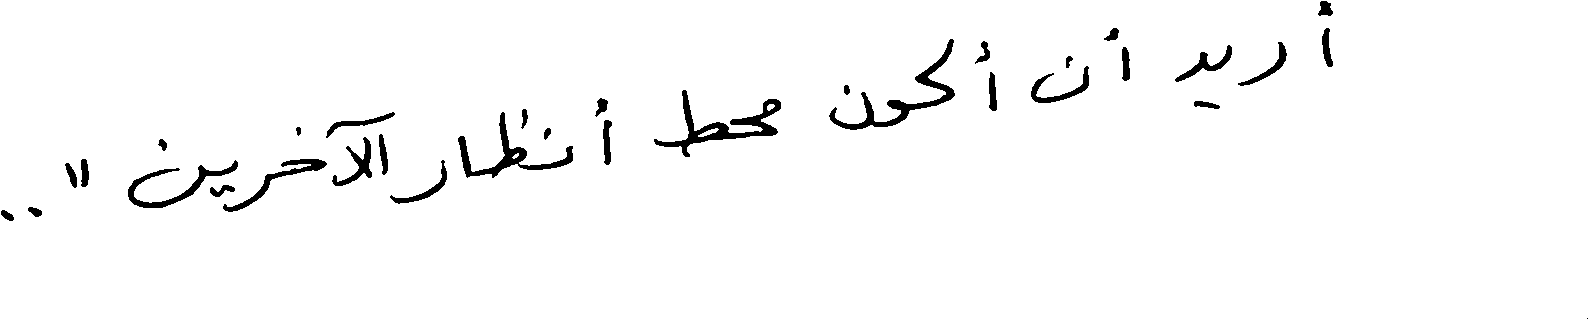 أريد أن أكون محط أنظار الآخرين "..